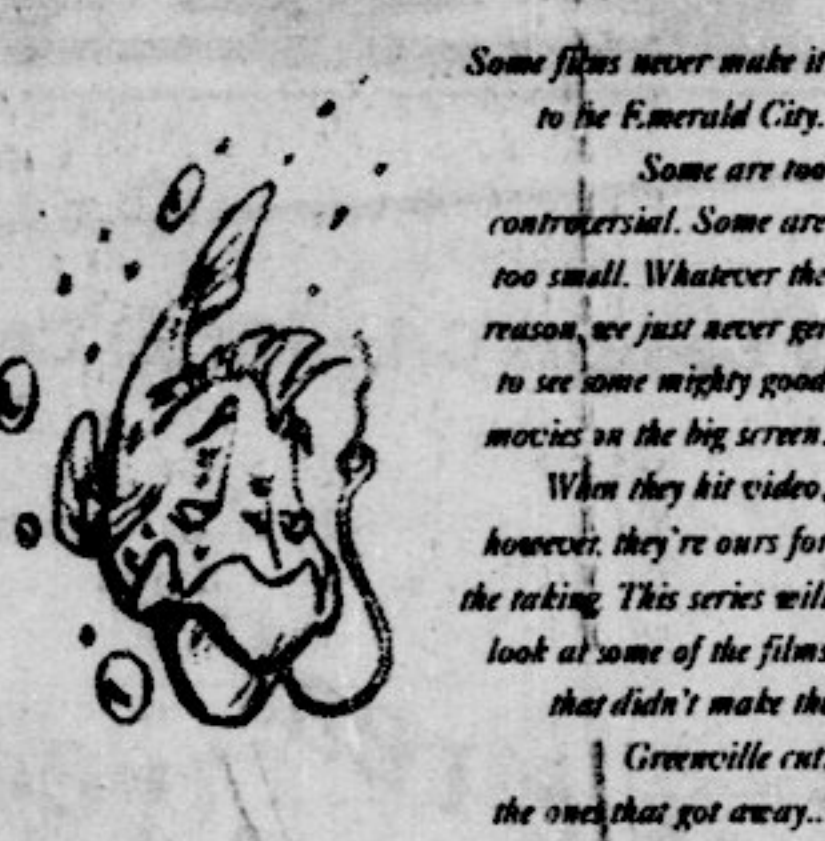 Some films never make it
to he Emerald City.
Some are too
controversial. Some are
too small. Whatever the
reason, we just never get
to see some mighty good
movies on the big screen.
When they hit video,
however, they're ours for
the taking. This series will
look at some of the films
that didn't make the
Greenville cut,
the ones that got away..